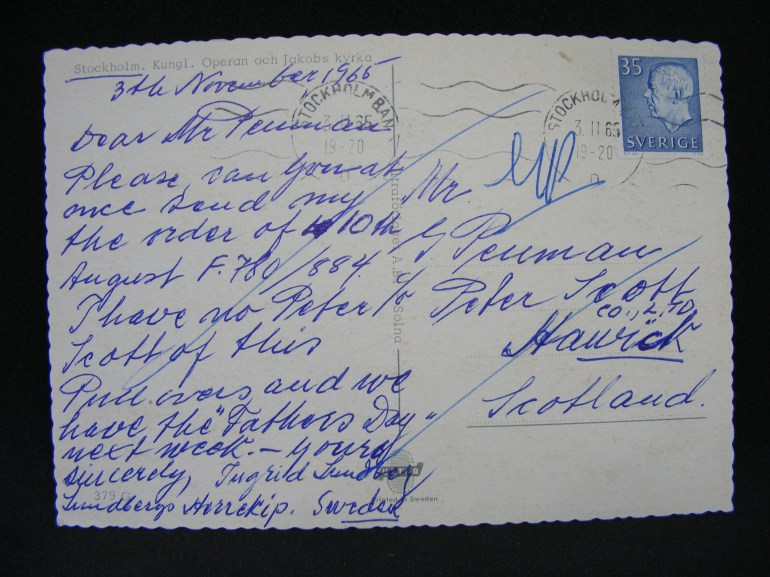 Stockholm. Kungl. Operan och Jakobs kyrka
3th November 1965
Dear Mr Penman
Please can you at
once send my
the order of 10th
August F. 780/884.
I have no Peter
Scott of this
Pull overs and we
have the "Fathers Day"
next week. – Yours
sincerely, Ingrid Lundberg
Lundbergs Herrekip. Sweden
379 G
Ultraförlaget A.B. Solna
Printed in Sweden
STOCKHOLM BAN
3.11.65
19-20
n
STOCKHOLM
3.11.65
19-20
n
35
SVERIGE
Mr.
G Penman
c/o Peter Scott
CO., LTD
Hawick
Scotland.